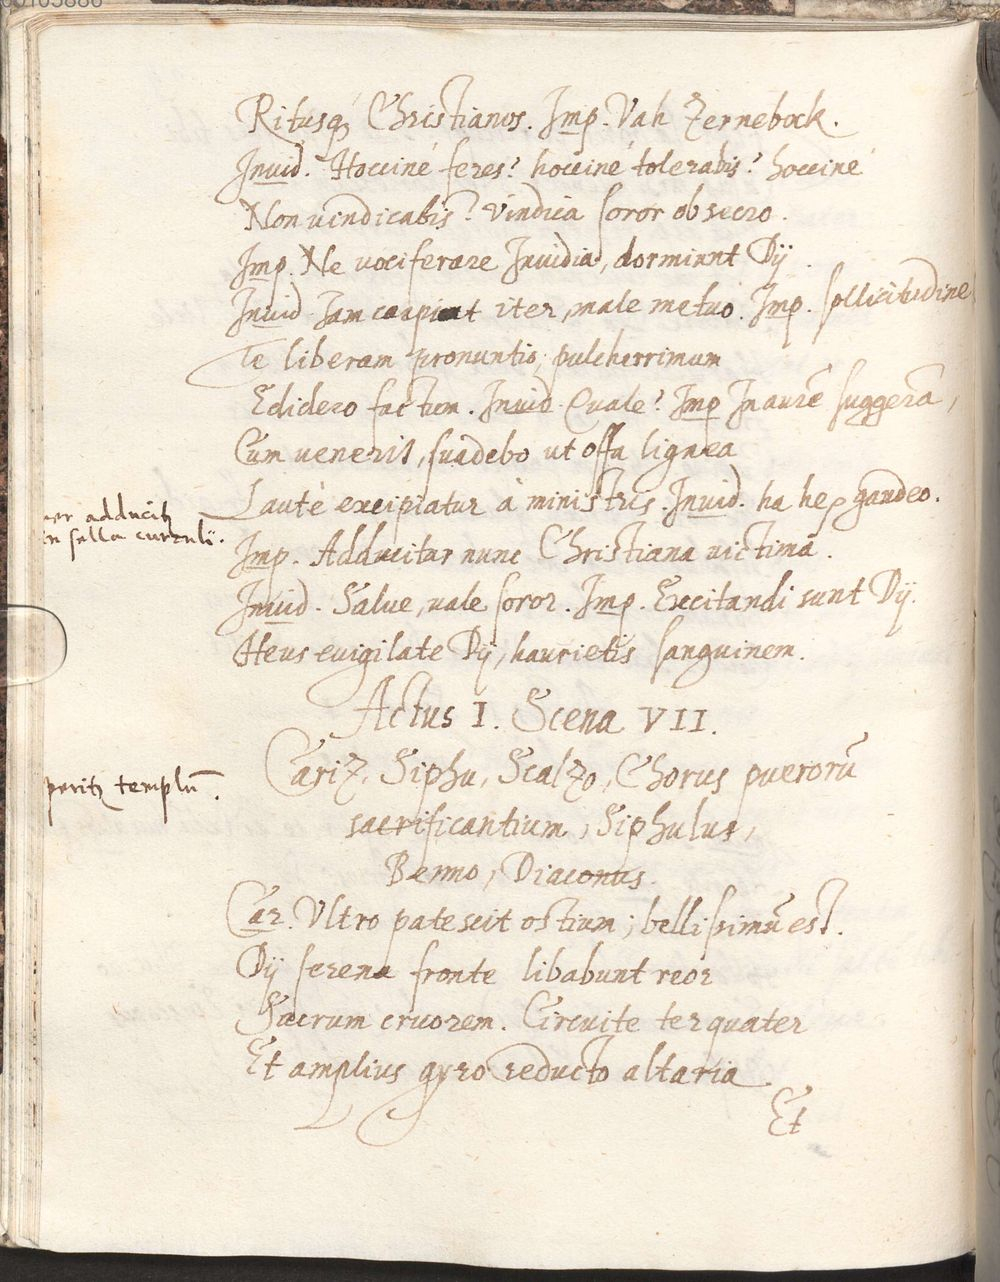 Ritusq; Christianos. Imp. Vah Zernebock.
Inuid. Hoccinè feres? hoccinè tolerabis? hoccinè
Non uindicabis? Vindica soror obsecro.
Imp. Ne uociferare Inuidia, dormiunt Dij.
Inuid. Iam carpiat iter, male metuo. Imp. sollicitudine
Te liberam pronuntio, pulcherrimum
Edidero factum. Inuid. Quale? Imp. In aurē suggerā,
Cum uenerit, suadebo ut offa lignea
Lautè excipiatur à ministris. Inuid. ha he, gaudeo.
adducitz
in sella curuli.
Imp. Adducitur nunc Christiana uictima.
Inuid. Salue, uale soror. Imp. Excitandi sunt Dij.
Heus euigilate Dij, haurietis sanguinem.
Actus I. Scena VII.
Cariz, Siphu, Scalzo, Chorus puerorū
peritz templū.
sacrificantium, Siphulus,
Benno, Diaconus.
Car. Vltro patescit ostium; bellissimū est.
Dij serena fronte libabunt reor
Sacrum cruorem. Circuite ter quater
Et amplius gyro reducto altaria
Et